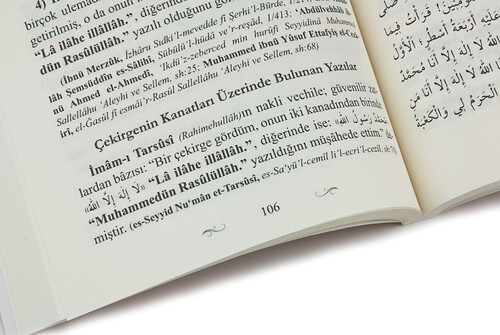 4)
birçok ulemad
getirilmiş, o da onun
"Lâ ilâhe illâllâh.", diğerinde
dün Rasûlüllâh." yazılı olduğunu gör
(İbnü Merzûk, İzhâru Sıdkı'l-mevedde fî Şerhi'l-Bürde, 1/
lâh Şemsüddîn es-Sâlihî, Sübülü'l-hüdâ ve'r-reşâd, 1/413;
nü Ahmed el-Ahmedî, 'Ikdü'z-zeberced min hurûfi Muhammed
Sallellâhu 'Aleyhi ve Sellem, sh:25; Muhammed ibnü Yûsuf Ettafyiş el-Cezâ
irî, el-Ğasûl fî esmâi'r-Rasûl Sallellâhu 'Aleyhi ve Sellem, sh:68)
Çekirgenin Kanatları Üzerinde Bulunan Yazılar
İmâm-ı Tarsûsî (Rahimehullâh)ın nakli vechile; güvenilir
lardan bâzısı: "Bir çekirge gördüm, onun iki kanadından birinde:
«لَا إِلٰهَ إِلَّا اللهُ» "Lâ ilâhe illâllâh.", diğerinde ise: رَسُولُ اللهِ
"Muhammedün Rasûlüllâh." yazıldığını müşâhede ettim." de
miştir. (es-Seyyid Nu'mân et-Tarsûsî, es-Sa'yü'l-cemîl li'l-ecri'l-cezîl, sh:
106
صَلَّى
قَرَأْتُ فِيمَا
أَرْبَعَةَ أَسْطُرٍ: اَلْأَوَّلُ
لَا إِلٰهَ إِلَّا أَنَا مُحَمَّدٌ
اللهُ لَا إِلٰهَ إِلَّا أَنَا مَنْ
الْحَرَمُ لِي وَالْكَعْبَةُ